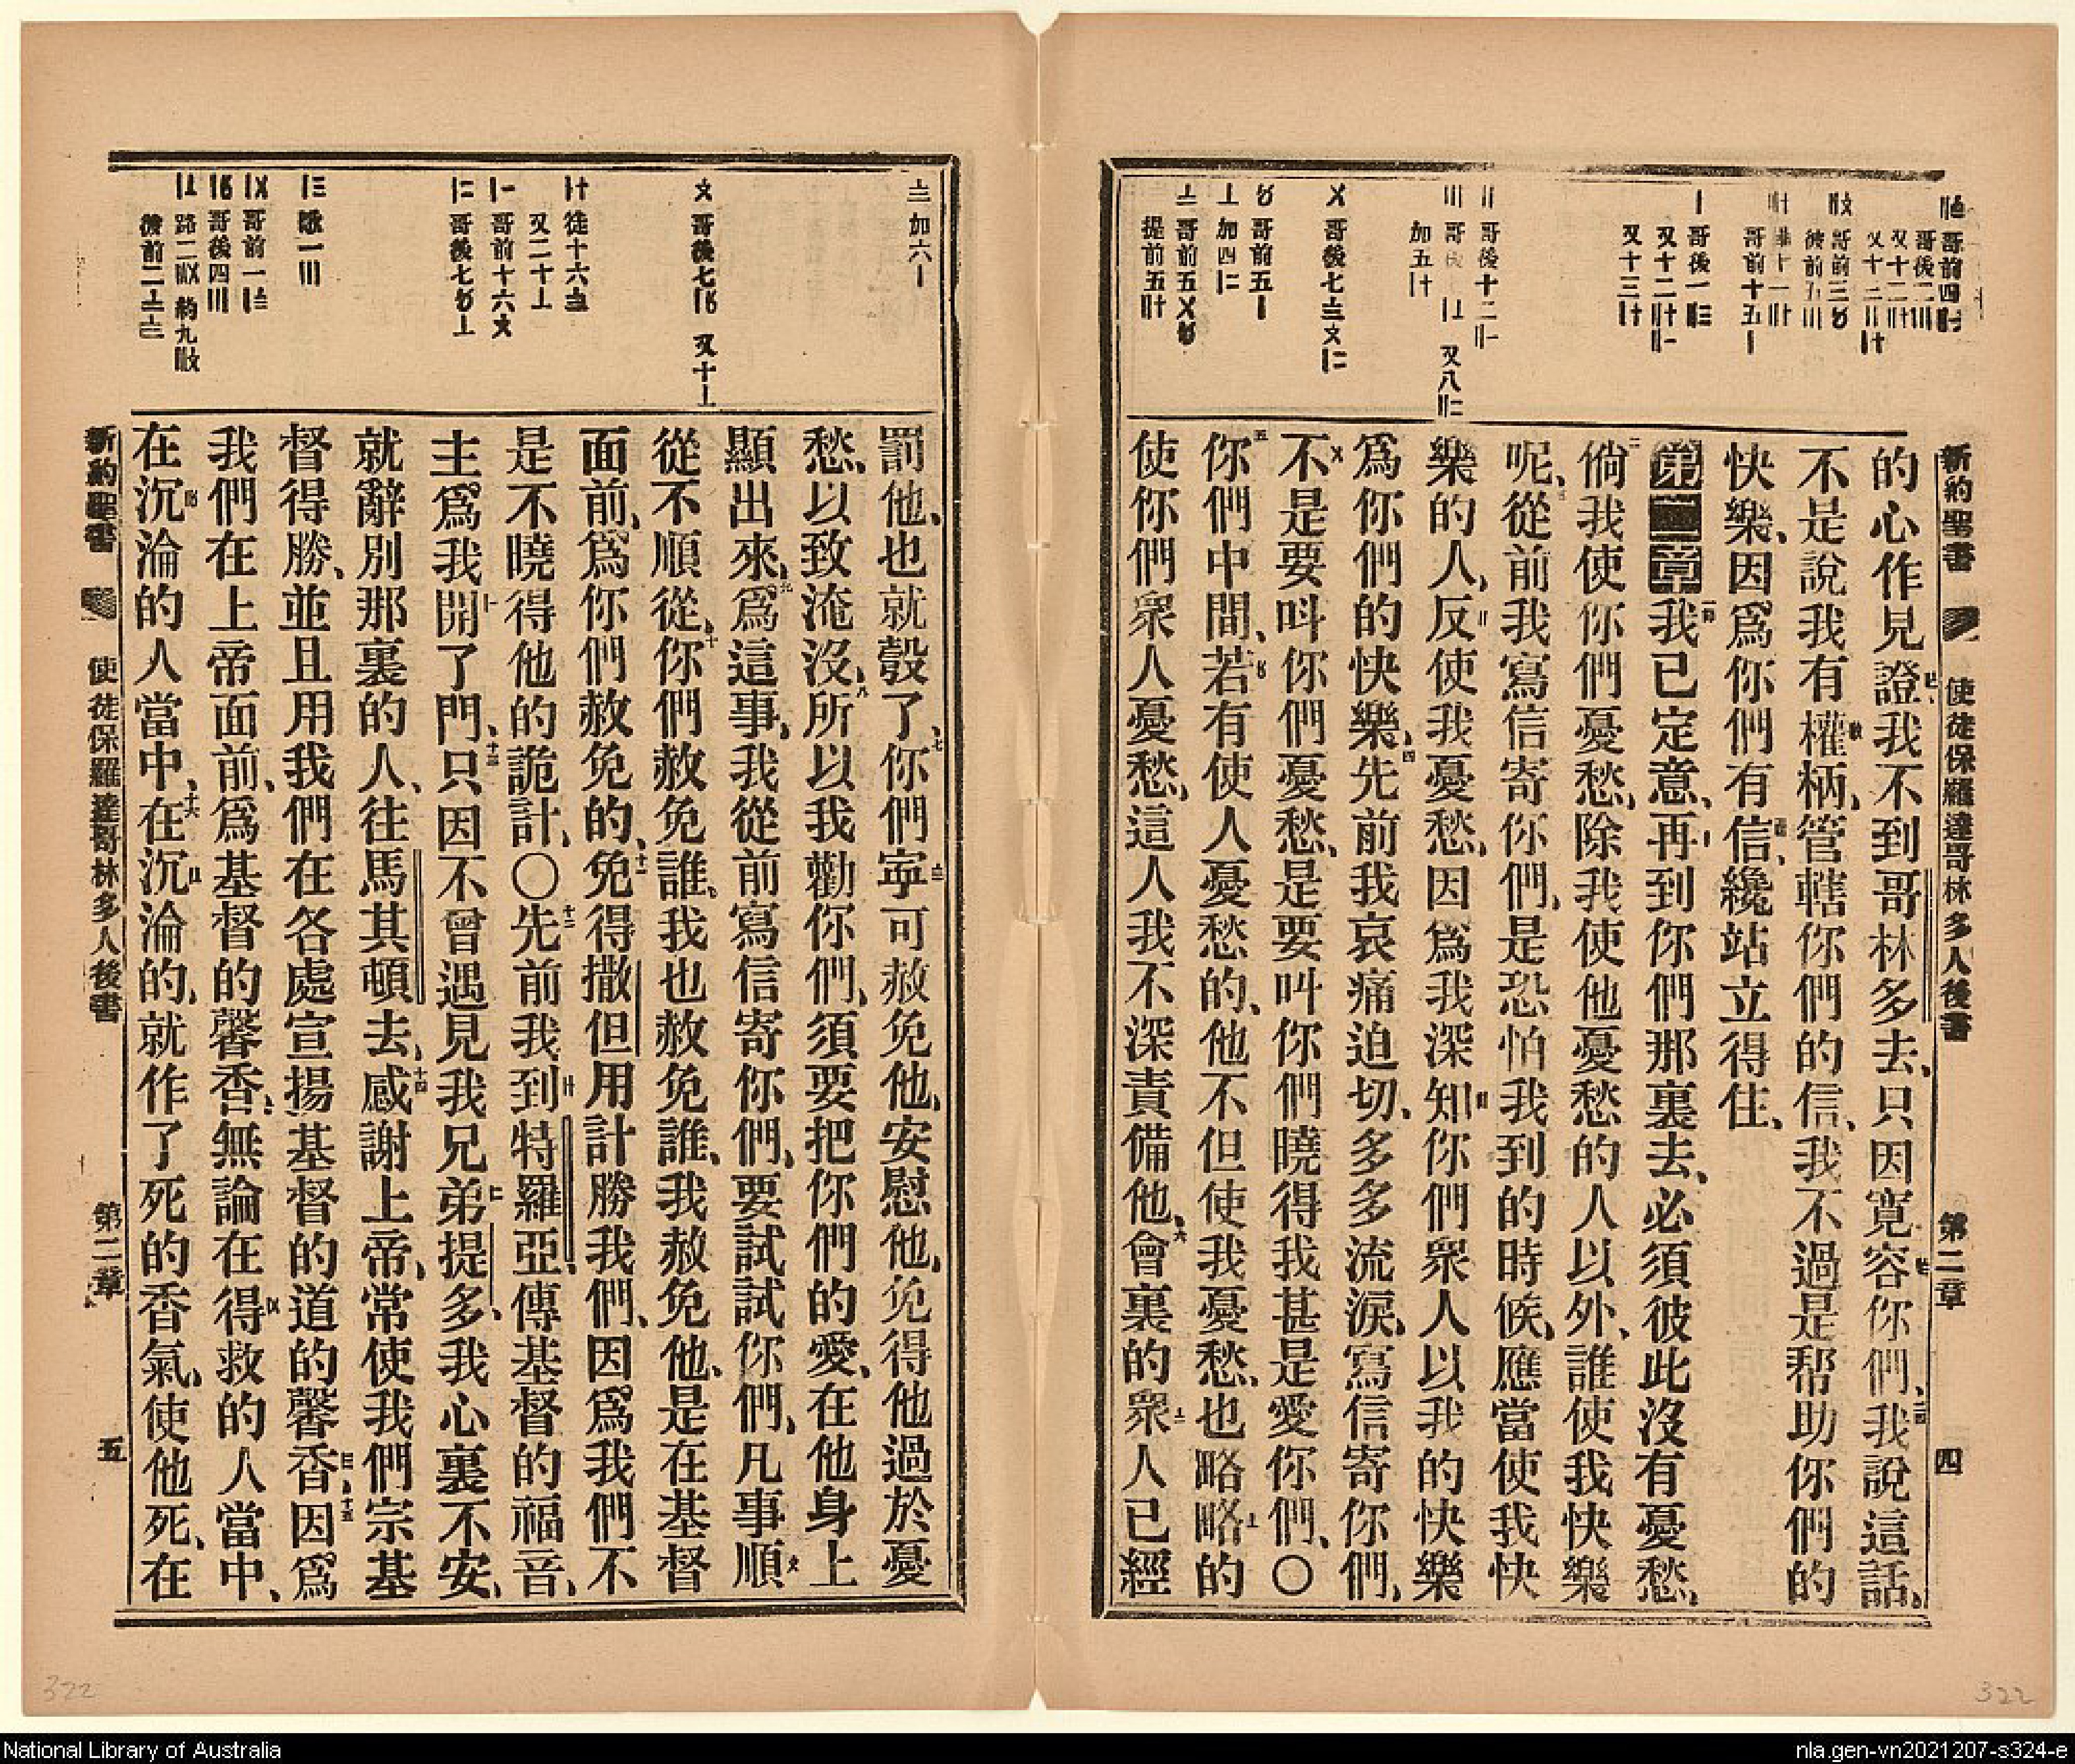 新約聖書 使徒保羅達哥林多人後書 第二章 四
的心作見證我不到哥林多去、只因寬容你們、我說這話、
不是說我有權柄、管轄你們的信、我不過是帮助你們的
快樂、因爲你們有信、纔站立得住、
第二章我已定意、再到你們那裏去、必須彼此沒有憂愁、
倘我使你們憂愁、除我使他憂愁的人以外、誰使我快樂
呢、從前我寫信寄你們、是恐怕我到的時候、應當使我快
樂的人、反使我憂愁、因爲我深知你們衆人以我的快樂
爲你們的快樂、先前我哀痛迫切、多多流淚、寫信寄你們、
不是要呌你們憂愁、是要叫你們曉得我甚是愛你們、○
你們中間、若有使人憂愁的、他不但使我憂愁、也略略的
使你們衆人憂愁、這人我不深責備他、會裏的衆人已經
哥前四
哥後二
哥前三
哥前十五〡
〡 哥後一
又十二
又十三
〢 哥後十二
〣 哥
又八
加五
〤 哥後七
〥 哥前五〡
〦 加四
〧 哥前五
提前五
〨 加六〡
〩 哥後七 又十〦
徒十六
又二十〦
哥前十六〩
哥後七
歌一〣
哥前一
哥後四〣
路二 約九
彼前二
罰他、也就彀了、你們寧可赦免他、安慰他、免得他過於憂
愁、以致淹沒、所以我勸你們、須要把你們的愛、在他身上
顯出來、爲這事、我從前寫信寄你們、要試試你們、凡事順
從不順從、你們赦免誰、我也赦免誰、我赦免他、是在基督
面前、爲你們赦免的、免得撒但用計勝我們、因爲我們不
是不曉得他的詭計、○先前我到特羅亞、傳基督的福音、
主爲我開了門、只因不曾遇見我兄弟提多、我心裏不安、
就辭別那裏的人、往馬其頓去、感謝上帝、常使我們宗基
督得勝、並且用我們在各處宣揚基督的道的馨香、因爲
我們在上帝面前、爲基督的馨香、無論在得救的人當中、
在沉淪的人當中、在沉淪的、就作了死的香氣、使他死、在
新約聖書 使徒保羅達哥林多人後書 第二章 五
322
322
National Library of Australia
nla.gen-vn2021207-s324-e